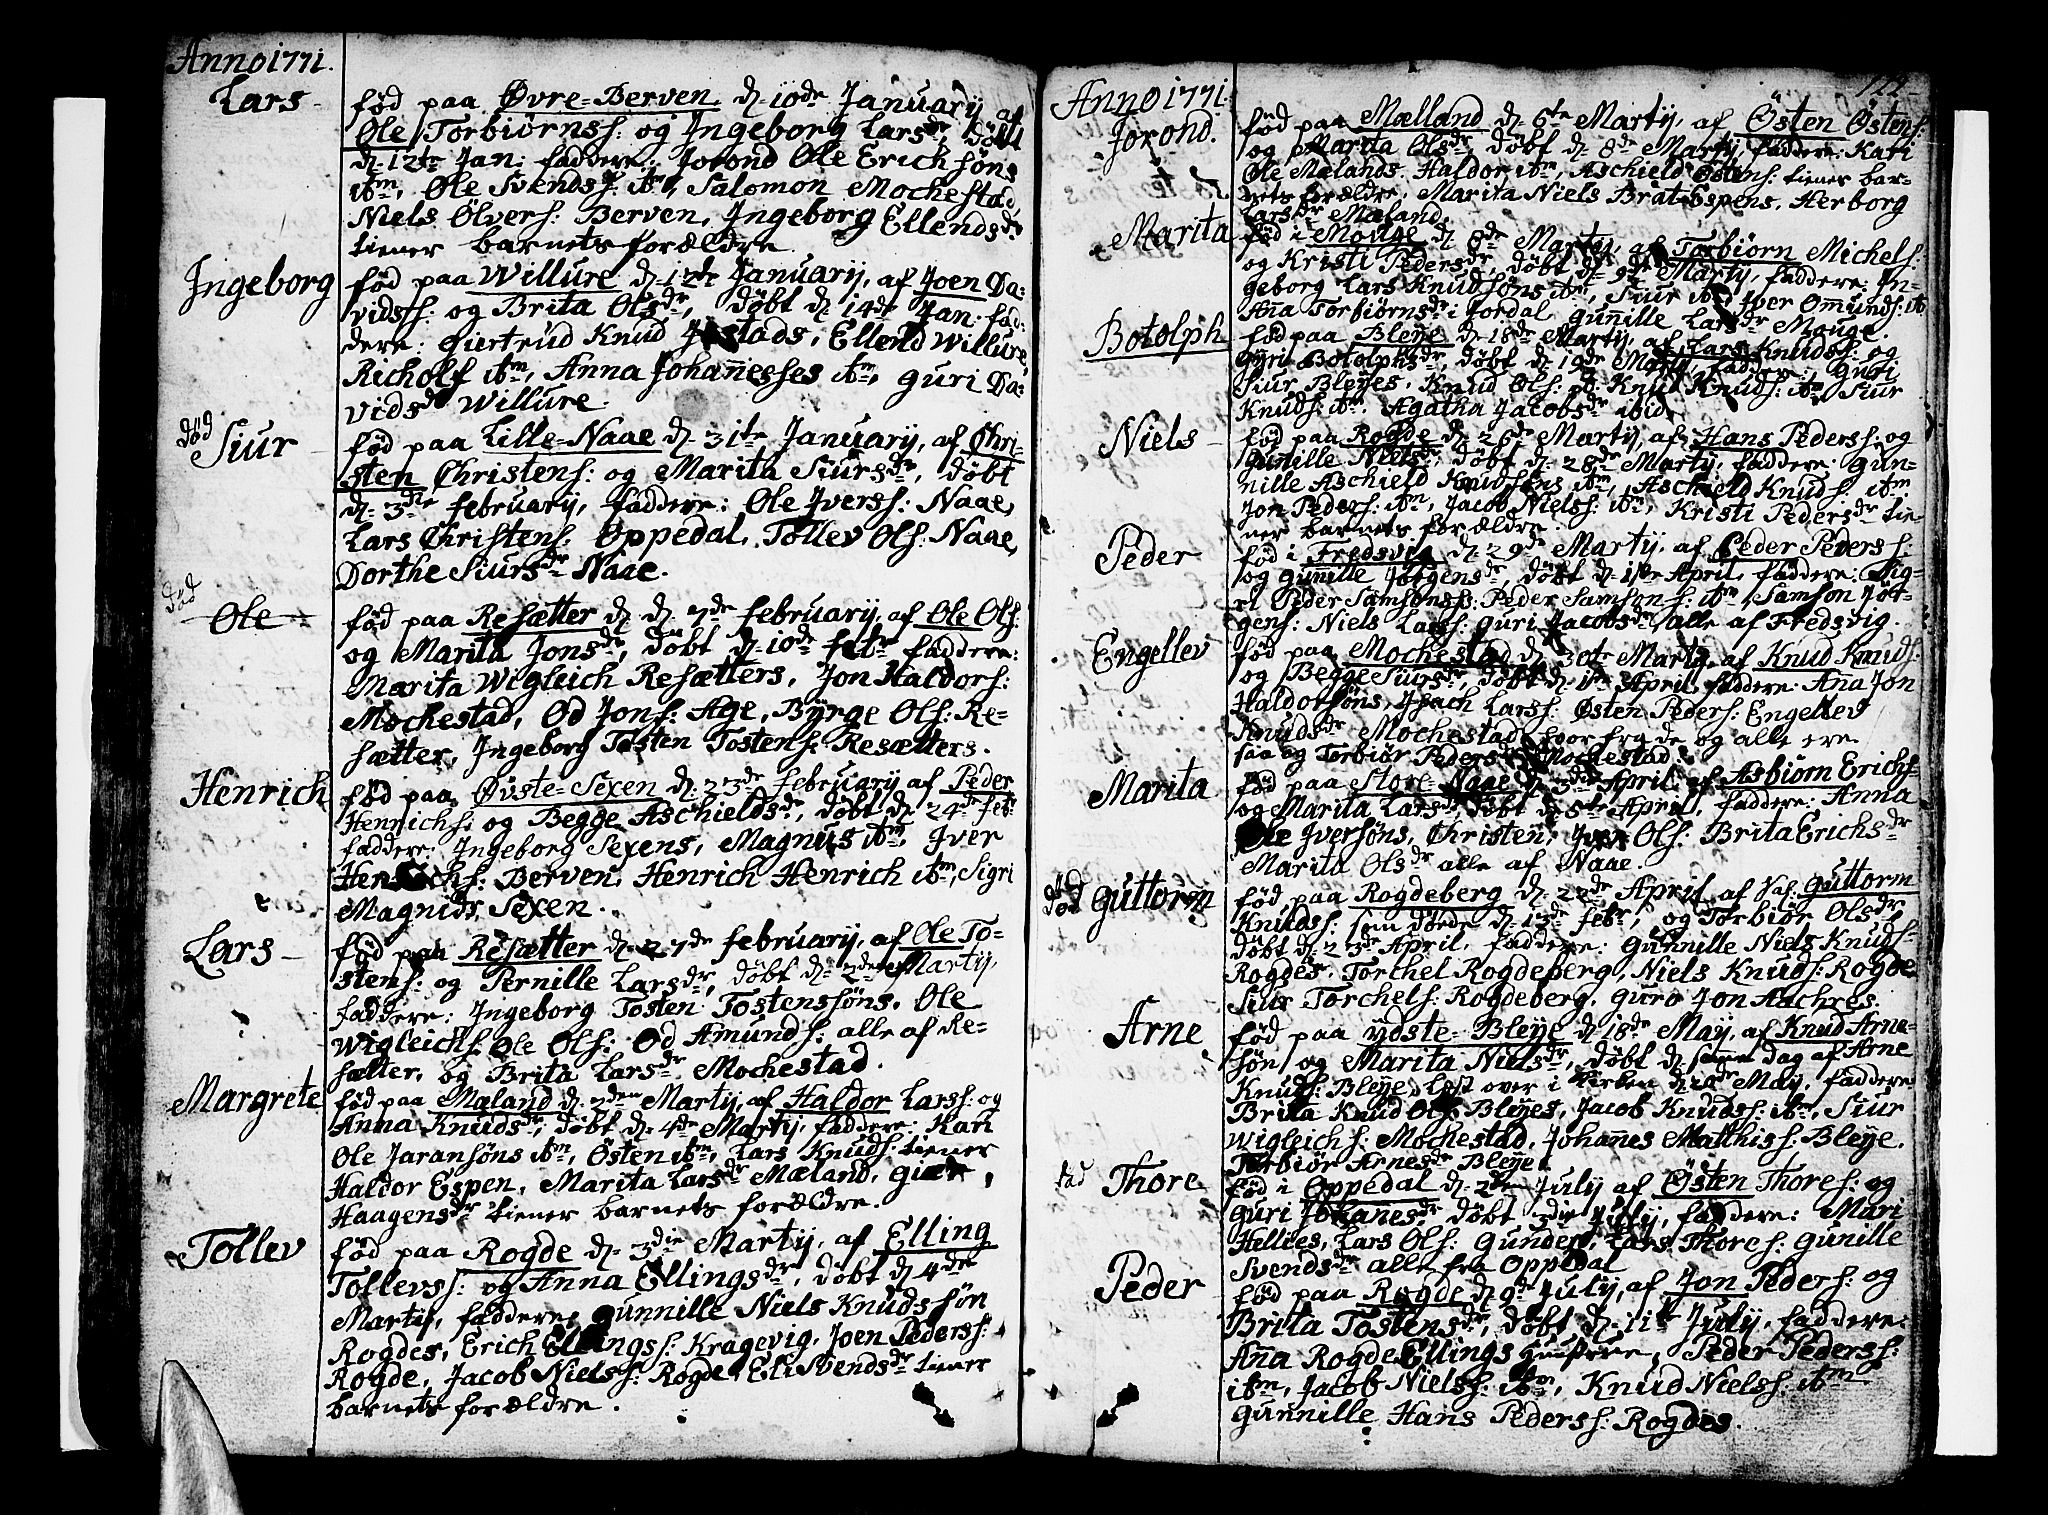 Anno 1771.
Lars
fød paa Øvre-Berven, d. 10de January af
Ole Torbiørns: og Ingeborg Larsdr, døbt
d. 12te Jan: faddere: Jorond Ole Erichsøns
itm, Ole Svends: itm, Salomon Mochestad,
Niels Ølvers: Berven, Ingeborg Ellendsdr
tiener barnets forældre.
Ingeborg
fød paa Willure d. 12te January, af Joen Da-
vidss: og Brita Olsdr, døbt d. 14de Jan: fad-
dere: Giertrud Knud Jstads, Ellend Willure,
Richolf itm, Anna Johannesses itm, Guri Da-
vidsdr Willure.
død
Siur
fød paa Lille-Naae d. 31te January, af Chri-
sten Christens: og Marita Siursdr, døbt
d. 3die February, faddere: Ole Jverss: Naae,
Lars Christens: Oppedal, Tollev Ols: Naae,
Dorthe Siursdr Naae.
død
Ole
fød paa Resætter d. d. 7de February, af Ole Ols:
og Marita Jonsdr, døbt d. 10de febr. faddere:
Marita Wigleich Resætters, Jon Haldors:
Mochestad, Od Jons: Age, Byrge Ols: Re-
sætter, Ingeborg Tosten Tostens: Resætters.
Henrich
fød paa Øvste-Sexen d. 23de February af Peder
Henrichs: og Begge Aschieldsdr, døbt d. 24de feb:
faddere: Ingeborg Sexens, Magnus itm, Jver
Henrichs: Berven, Henrich Henrich itm, Sigri
Magnids Sexen.
Lars
fød paa Resætter d. 27de February, af Ole To-
stens: og Pernille Larsdr, døbt d. 2den Marty,
faddere: Ingeborg Tosten Tostenssøns, Ole
Wigleichs: Ole Ols: Od Amunds: alle af Re-
sætter, og Brita Larsdr Mochestad.
Margrete
fød paa Mæland d. 2den Marty af Haldor Larss: og
Anna Knudsdr, døbt d. 4de Marty, faddere: Kari
Ole Jaransøns itm, Østen itm, Lars Knuds: tiener
Haldor Espen, Marita Larsdr Mæland,
Haagensdr tiener barnets forældre.
Tollev
fød paa Rogde d. 3die Marty, af Elling
Tollevss: og Anna Ellingsdr, døbt d. 4de
Marty, faddere, Gunnille Niels Knudssøn
Rogdes, Erich Ellingss: Kragevig, Joen Pederss:
Rogde, Jacob Nielss: Rogde, Eli Svendsdr tiener
barnets forældre.
122
Anno 1771.
Jorond.
fød paa Mælland d. 6te Marty, af Østen Østens:
og Marita Olsdr, døbt d. 8de Marty, faddere: Kari
Ole Mælands, Haldor itm, Aschield Østens: tiener bar-
nets forældre, Marita Niels Brat-Espens, Herborg
Larsdr Mæland.
Marita
fød i Mouge d. 8de Marty, af Torbiørn Michels:
og Kristi Pedersdr, døbt d. 9de Marty, faddere: In-
geborg Lars Knudsøns itm, Siur itm Jver Omunds: itm
Anna Torbiørnsdr i Jordal, Gunille Larsdr Mouge.
Botolph
fød paa Bleye d. 18de Marty, af Lars Knuds: og
Gyri Botolphsdr, døbt d. 19de Marty, faddere: Guri
Siur Bleyes, Knud Ols: itm Knud Knuds: itm Siur
Knuds: itm. Agatha Jacobsdr ibid.
Niels
fød paa Rogde d. 26de Marty, af Hans Peders: og
Gunille Nielsdr, døbt d. 28de Marty, faddere: Gun-
nille Aschield Knudsøns itm, Aschield Knuds: itm
Jon Peders: itm, Jacob Niels: itm, Kristi Pedersdr tie-
ner barnets forældre.
Peder
fød i Fredsvig d. 29de Marty, af Peder Peders:
og Gunille Jørgensdr, døbt d. 1ste April, faddere: Sig-
ri Peder Samsønss: Peder Samsons: itm, Samson Jør-
gens: Niels Larss: Guri Jacobsdr, alle af Fredsvig.
Engellev
fød paa Mochestad d. 30te Marty, af Knud Knuds:
og Begge Siursdr, døbt d. 1ste April, faddere: Anna Jon
Haldorsøns, Larss: Østen Peders: Engellev
Knudsdr Mochestad
og Torbiør Pedersdr Mochestad.
Marita
fød paa Store-Naae d. 3die April af Asbiørn Erichs:
og Marita Larsdr døbt d. 5te April, faddere: Anna
Ole Jversøns, Christen, Jver Ols: Brita Erichsdr
Marita Olsdr alle af Naae.
død
Guttorm
fød paa Rogdeberg d. 22de April af Sal. Guttorm
Knuds: som døede d. 13de febr, og Torbiør Olsdr
døbt d. 23de April, faddere: Gunnille Niels Knuds:
Rogdes, Torchel Rogdeberg, Niels Knuds: Rogde
Siur Torchels: Rogdeberg, Guro Jon Aachres.
Arne
fød paa ydste-Bleye d. 18de May, af Knud Arne-
søn og Marita Nielsdr, døbt d. samme dag af Arne
Knuds: Bleye, læst over i Kirken d. 19de May, faddere:
Brita Knud Ols: Bleyes, Jacob Knudss: itm, Siur
Wigleichs: Mochestad, Johannes Matthiss: Bleye,
Torbiør Arnesdr Bleye.
død
Thore
fød i Oppedal d. 2den July af Østen Thores: og
Guri Johanesdr, døbt 3die July, faddere: Mari
Hellies, Lars Ols: Gunder, Lars Thores: Gunille
Svendsdr alle fra Oppedal
Peder
fød paa Rogde d. 9de July, af Jon Peders: og
Brita Tostensdr, døbt d. 11te July, faddere:
Ana Rogde Ellings Hustrue, Peder Peders:
itm, Jacob Nielss: itm, Knud Nielss: itm
Gunnille Hans Pederss: Rogdes.